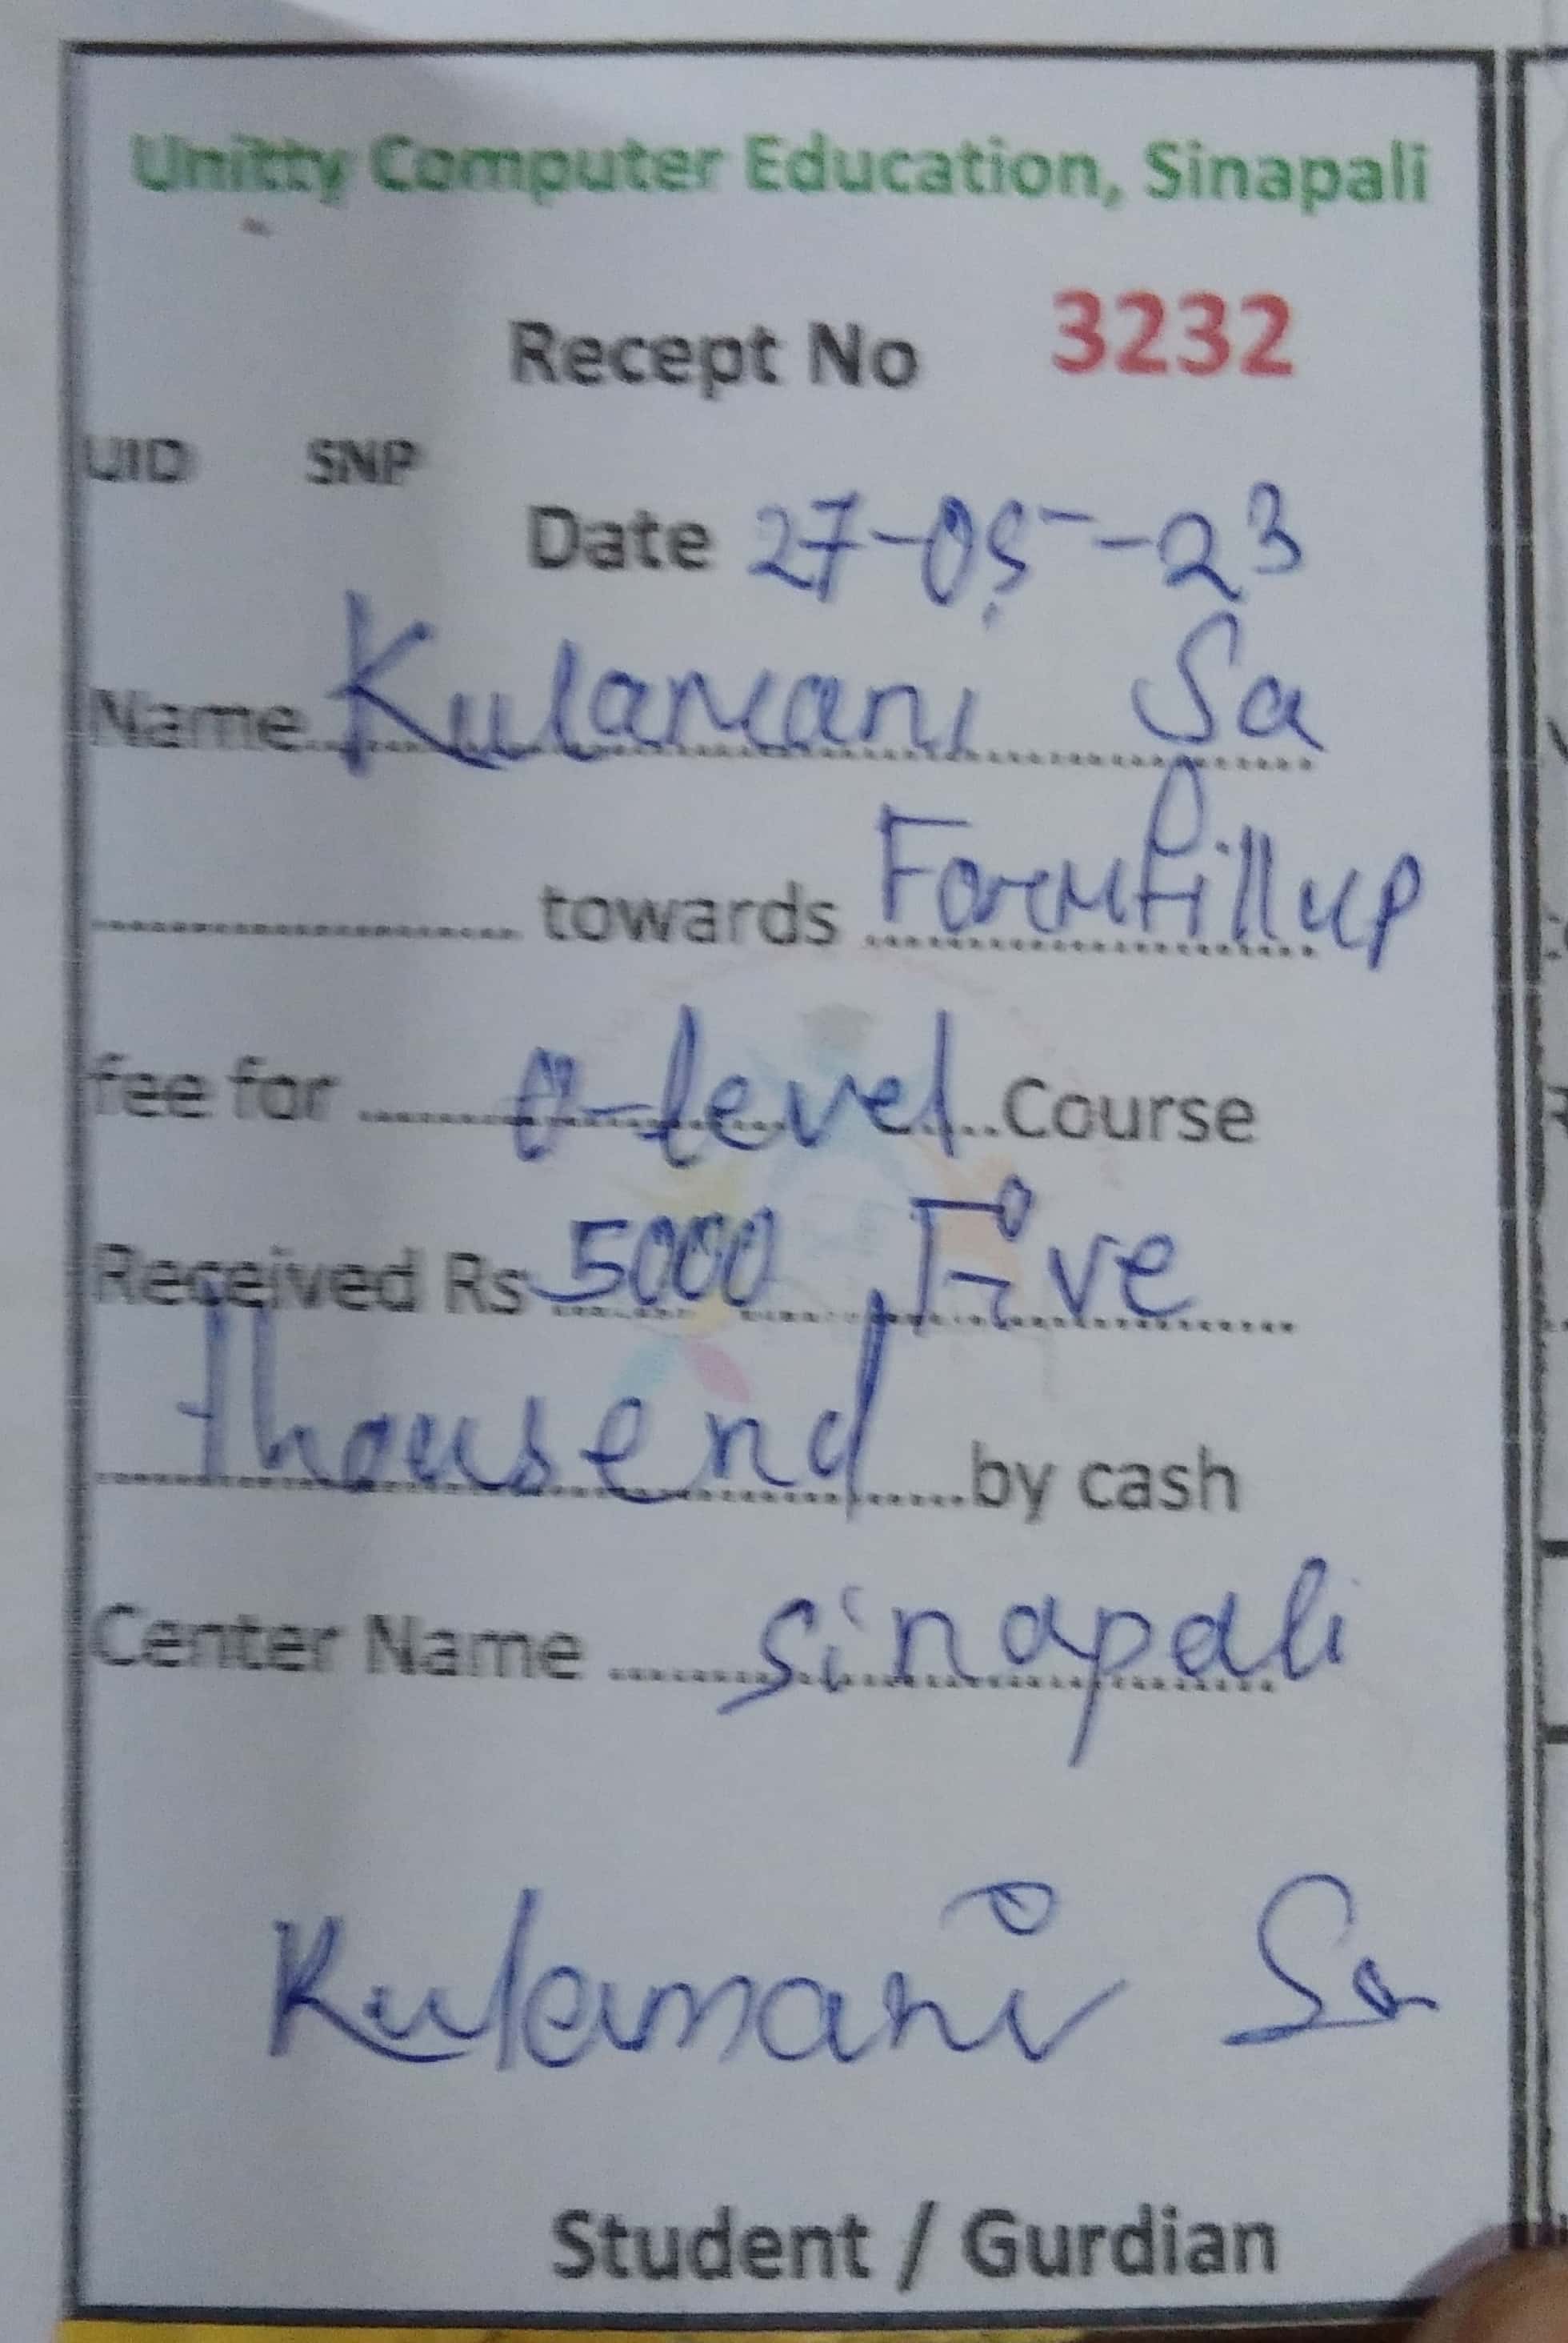 Unitty Computer Education, Sinapali
Recept No 3232
UID SNP
Date 27-05-23
Name Kulamani Sa
towards Formfillup
fee for O-level Course
Received Rs 5000 Five
thousend by cash
Center Name Sinapali
Kulamani Sa
Student / Gurdian